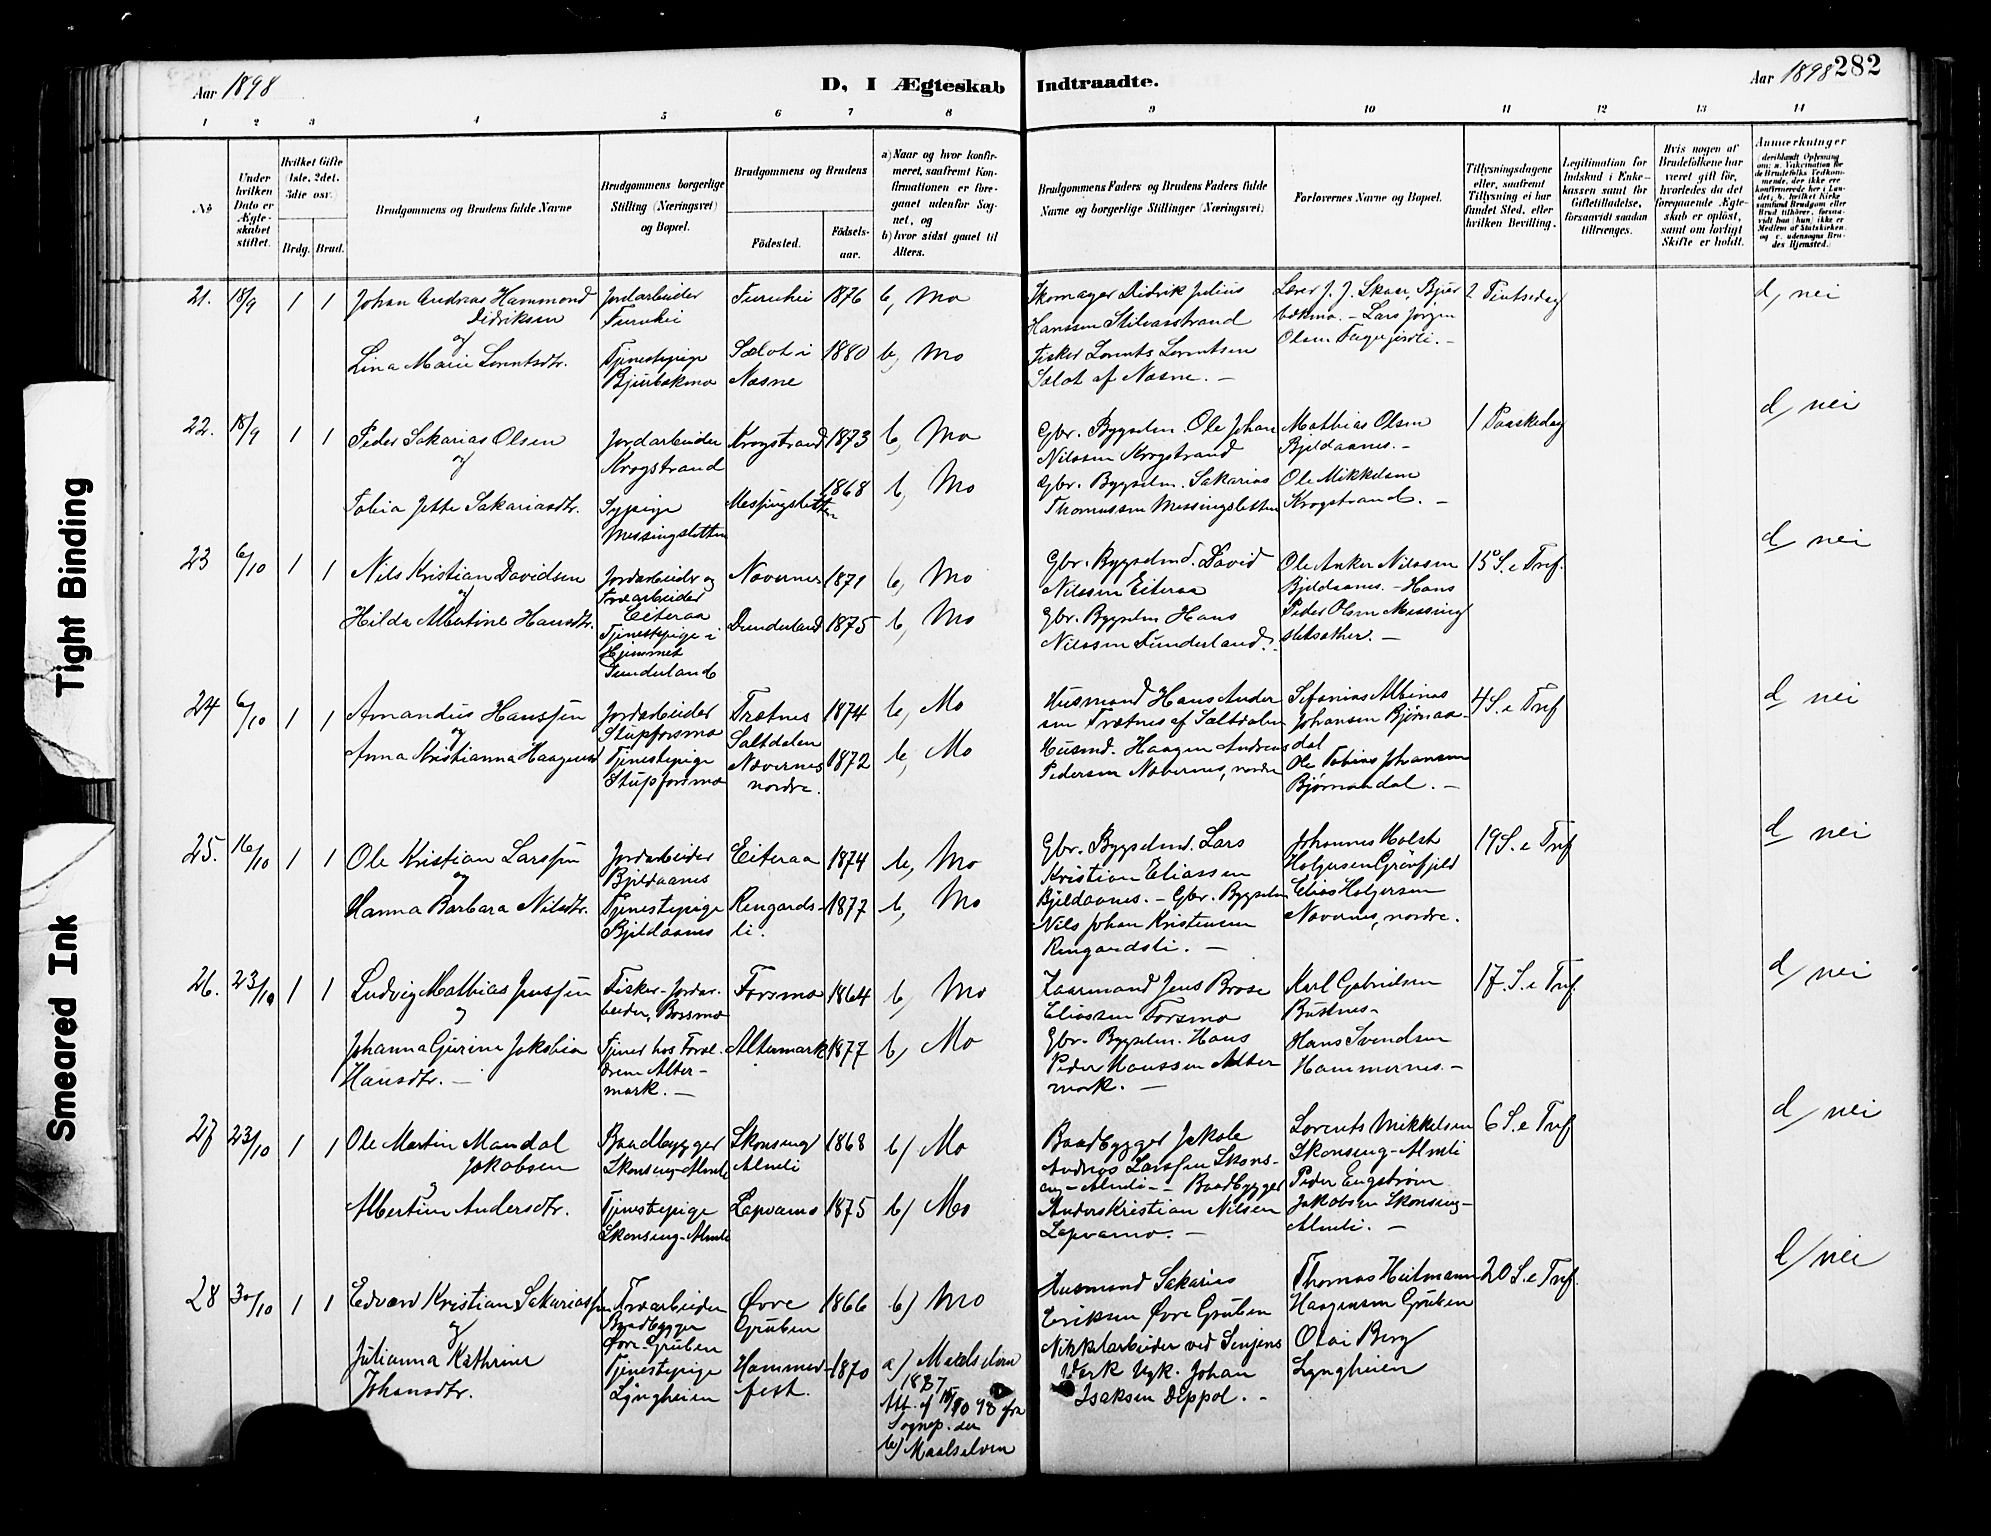 Aar 1898
D, I Ægteskab
Indtraadte.
Aar 1898
282
1
2
3
4
5
6
7
8
9
10
11
12
13
14
No
Under hvilken Dato er Ægteskabet stiftet.
Hvilket Gifte (1ste, 2det, 3die osv.)
Brdg.
Brud.
Brudgommens og Brudens fulde Navne
Brudgommens borgerlige Stilling (Næringsvei) og Bopæl.
Brudgommens og Brudens
Födested.
Födsels-aar.
a) Naar og hvor konfirmeret, saafremt Konfirmationen er foregaaet udenfor Sognet, og
b) hvor sidst gaaet til Alters.
Brudgommens Faders og Brudens Faders fulde Navne og borgerlige Stillinger (Næringsvei)
Forlovernes Navne og Bopæl.
Tillysningsdagene eller, saafremt Tillysning ei har fundet Sted, efter hvilken Bevilling.
Legitimation for Indskud i Enkekassen samt for Giftetilladelse, forsaavidt saadan tiltrænges.
Hvis nogen af Brudefolkene har været gift för, hvorledes da det foregaaende Ægteskab er oplöst, samt om lovligt Skifte er holdt.
Anmærkninger
21.
18/9
1
1
Johan Andreas Hammond
Didriksen
og
Lina Marie Lorntsdtr.
Jordarbeider
Furuhei
Tjenestepige
Bjurbækmo
Furuhei
Selot i
Næsne
1876
1880
b, Mo
b, Mo
Skomager Didrik Julius
Hanssen Stilvasstrand
Fisker Lorents Lorentsen
Selot af Næsne. —
Lærer J. J. Skaar, Bjur
bækmo. — Lars Jørgen
Olsen Fagerjordli. —
2 Pintsedag
d, nei
22.
18/9
1
1
Peder Sakarias Olsen
og
Tobia Jette Sakariasdtr.
Jordarbeider
Krogstrand
Sypige
Messingsletten
Krogstrand
Messingsletten
1873
1868
b, Mo
b, Mo
Gbr. Bygselm. Ole Johan
Nilssen Krogstrand
Gbr. Bygselm. Sakarias
Thomassen Messingsletten
Mathias Olsen
Bjeldaanes. —
Ole Mikkelsen
Krogstrand. —
1 Paaskedag
d, nei
23
6/10
1
1
Nils Kristian Davidsen
og
Hilda Albertine Hansdtr.
Jordarbeider og
Træarbeider
Eiteraa
Tjenestepige i
Hjemmet
Dunderland
Nævernes
Dunderland
1871
1875
b, Mo
b, Mo
Gbr. Bygselmd. David
Nilssen Eiteraa
Gbr. Bygselm Hans
Nilssen Dunderland.
Ole Anker Nilssen
Bjeldaanes. — Hans
Peder Olsen Messing
sletsæther. —
15 S. e Tref.
d, nei
24
6/10
1
1
Amandus Hanssen
og
Anna Kristianna Haagensd
Jordarbeider
Stupforsmo
Tjenestepige
Stupforsmo
Trætnes
Saltdalen
Nævernes
nordre.
1874
1872
b, Mo
b, Mo
Husmand Hans Ander
sen Trætnes af Saltdalen
Husmd. Haagen Andreas
Pedersen Nævernes, nordre
Sefanias Albinas
Johansen Bjørnaa-
dal
Ole Tobias Johansen
Bjørnaadal. —
4 S. e Tref
d, nei
25.
16/10
1
1
Ole Kristian Larssen
og
Hanna Barbara Nilsdtr.
Jordarbeider
Bjeldaanes
Tjenestepige
Bjeldaanes
Eiteraa
Rengaards-
li.
1874
1877
b, Mo
b, Mo
Gbr. Bygselmd. Lars
Kristian Eliassen
Bjeldaanes. — Gbr. Bygselm
Nils Johan Kristensen
Rengaardsli. —
Johannes Holst
Holgersen Grønfjeld
Elias Holgersen
Nævernes, nordre.
19 S. e Tref
d, nei
26.
23/10
1
1
Ludvig Mathias Jenssen
og
Johanna Gurine Jakobia
Hansdtr. —
Fisker-Jordar-
beider, Forsmo
Tjener hos Foræl-
drene Alter-
mark. —
Forsmo
Altermark
1864
1877
b, Mo
b, Mo
Kaarmand Jens Brose
Eliassen Forsmo
Gbr. Bygselm. Hans
Peder Hanssen Alter
mark. —
Karl Gabrielsen
Bustnes-
Hans Svendsen
Hammernes. —
17. S. e Tref.
d, nei
27
23/10
1
1
Ole Martin Mandal
Jakobsen
og
Albertine Andersdtr.
Baadbygger
Skonseng-Almli
Tjenestepige
Skonseng-Almli
Skonseng
Almli
Lapvamo
1868
1875
b) Mo
b) Mo
Baadbygger Jakob
Andreas Larssen Skons-
eng-Almli — Baadbygger
Anders Kristian Nilsen
Lapvamo. —
Lorents Mikkelsen
Skonseng-Almli
Peder Engstrøm
Jakobsen Skonseng-
Almli. —
6 S. e Tref
d, nei
28
30/10
1
1
Edvard Kristian Sakariassen
og
Julianna Kathrine
Johansdtr.
Træarbeider
Baadbygger
Øvre Gruben
Tjenestepige
Lyngheien
Øvre
Gruben
Hammer-
fest.
1866
1870
b) Mo
a) Maalselven
1887
Sognep. der
b) Maalselven
Husmand Sakarias
Eriksen Øvre Gruben
Nikkelarbeider ved Senjens
Værk Ugk. Johan
Isaksen Deppol. —
Thomas Heitmann
Haagensen Gruben
Olai Berg
Lyngheien
20 S. e Tref.
d, nei
Tight Binding
Smeared Ink